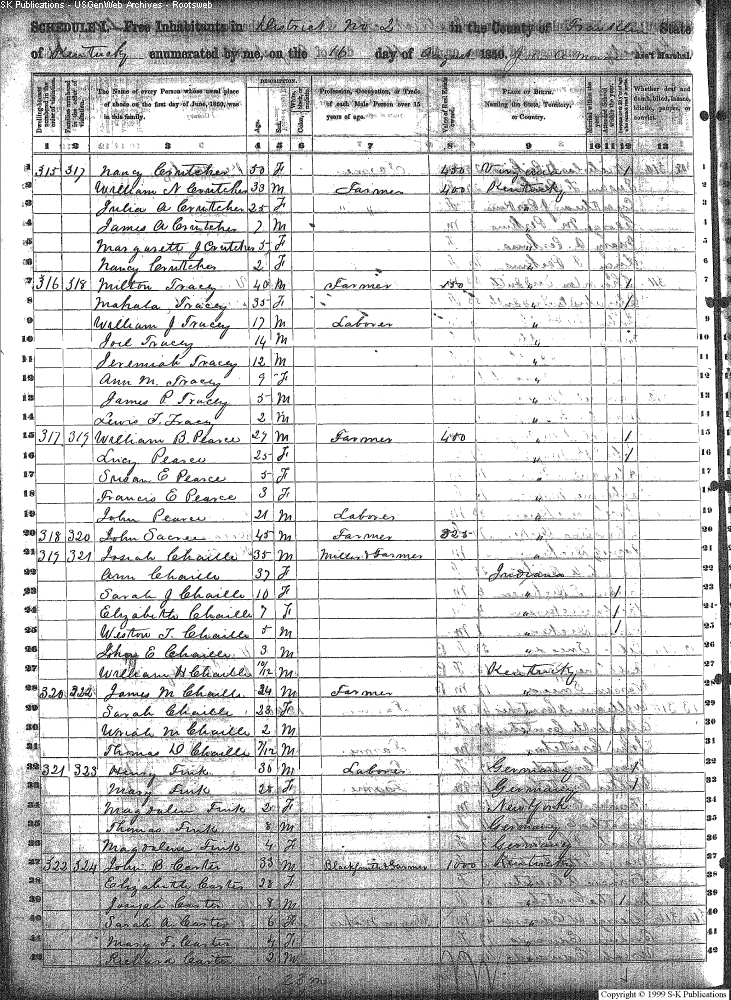 S-K Publications - USGenWeb Archives - Rootsweb
SCHEDULE I.—Free Inhabitants in District No 2 in the County of Franklin State
of Kentucky enumerated by me, on the 16 day of August 1850. Ass't Marshal.
Dwelling-houses numbered in the order of visitation. Families numbered in the order of visitation. The Name of every Person whose usual place of abode on the first day of June, 1850, was in this family. DESCRIPTION. Age. Sex. Color. Profession, Occupation, or Trade of each Male Person over 15 years of age. Value of Real Estate owned. PLACE OF BIRTH. Naming the State, Territory, or Country. Whether deaf and dumb, blind, insane, idiotic, pauper, or convict.
1 2 3 4 5 6 7 8 9 10 11 12 13
1 315 317 Nancy Crutcher 50 F 450 Virginia / 1
2 William N Crutcher 33 M Farmer 400 Kentucky 2
3 Julia A Crutcher 25 F " " " 3
4 James A Crutcher 7 M " 4
5 Margarett J Crutcher 5 F " 5
6 Nancy Crutcher 2 F " 6
7 316 318 Milton Tracy 40 M Farmer 150 " / 7
8 Mahala Tracey 35 F " / 8
9 William J Tracey 17 M Laborer " 9
10 Joel Tracey 14 M " 10
11 Jeremiah Tracey 12 M " 11
12 Ann M. Tracey 9 F " 12
13 James P Tracey 5 M " 13
14 Lewis T. Tracy 2 M " 14
15 317 319 William B. Pearce 27 M Farmer 400 " / 15
16 Lucy Pearce 25 F " / 16
17 Susan E Pearce 5 F " 17
18 Francis E Pearce 3 F " 18
19 John Pearce 21 M Laborer " 19
20 318 320 John Sacree 45 M Farmer 825 " 20
21 319 321 Josiah Chaille 35 M Miller & Farmer " 21
22 Ann Chaille 37 F Indiana 22
23 Sarah J Chaille 10 F " / 23
24 Elizabeth Chaille 7 F " / 24
25 Weston T. Chaille 5 M " / 25
26 John E Chaille 3 M " 26
27 William H Chaille 10/12 M Kentucky 27
28 320 322 James M Chaille 24 M Farmer " 28
29 Sarah Chaille 28 F " 29
30 Uriah M Chaille 2 M " 30
31 Thomas D Chaille 7/12 M " 31
32 321 323 Henry Fink 30 M Laborer Germany / 32
33 Mary Fink 28 F Germany / 33
34 Magdalen Fink 2 F New York 34
35 Thomas Fink 8 M Germany 35
36 Magdalena Fink 4 F Germany 36
37 322 324 John B Carter 33 M Blacksmith & Farmer 1000 Kentucky 37
38 Elizabeth Carter 28 F " 38
39 Joseph Carter 8 M " / 39
40 Sarah A Carter 6 F " 40
41 Mary F. Carter 4 F " 41
42 Richard Carter 2 M " 42
23 m
Copyright © 1999 S-K Publications